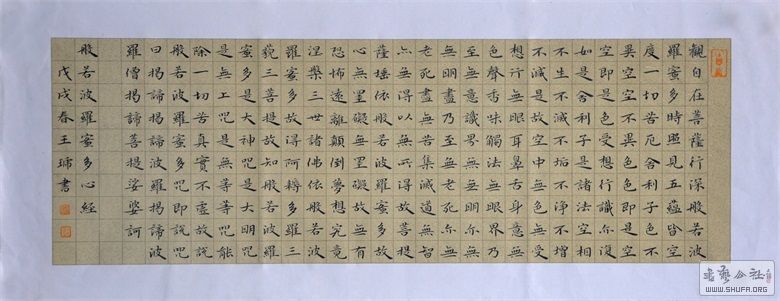 觀自在菩薩行深般若波
羅蜜多時照見五蘊皆空
度一切苦厄舍利子色不
異空空不異色色即是空
空即是色受想行識亦復
如是舍利子是諸法空相
不生不滅不垢不淨不增
不減是故空中無色無受
想行無眼耳鼻舌身意無
色聲香味觸法無眼界乃
至無意識界無無明亦無
無明盡乃至無老死亦無
老死盡無苦集滅道無智
亦無得以無所得故菩提
薩埵依般若波羅蜜多故
心無罣礙無罣礙故無有
恐怖遠離顛倒夢想究竟
涅槃三世諸佛依般若波
羅蜜多故得阿耨多羅三
藐三菩提故知般若波羅
蜜多是大神咒是大明咒
是無上咒是無等等咒能
除一切苦真實不虛故說
般若波羅蜜多咒即說咒
曰揭諦揭諦波羅揭諦波
羅僧揭諦菩提娑婆訶
般若波羅蜜多心經
戊戌春王瑞書
書藝公社
WWW.SHUFA.ORG